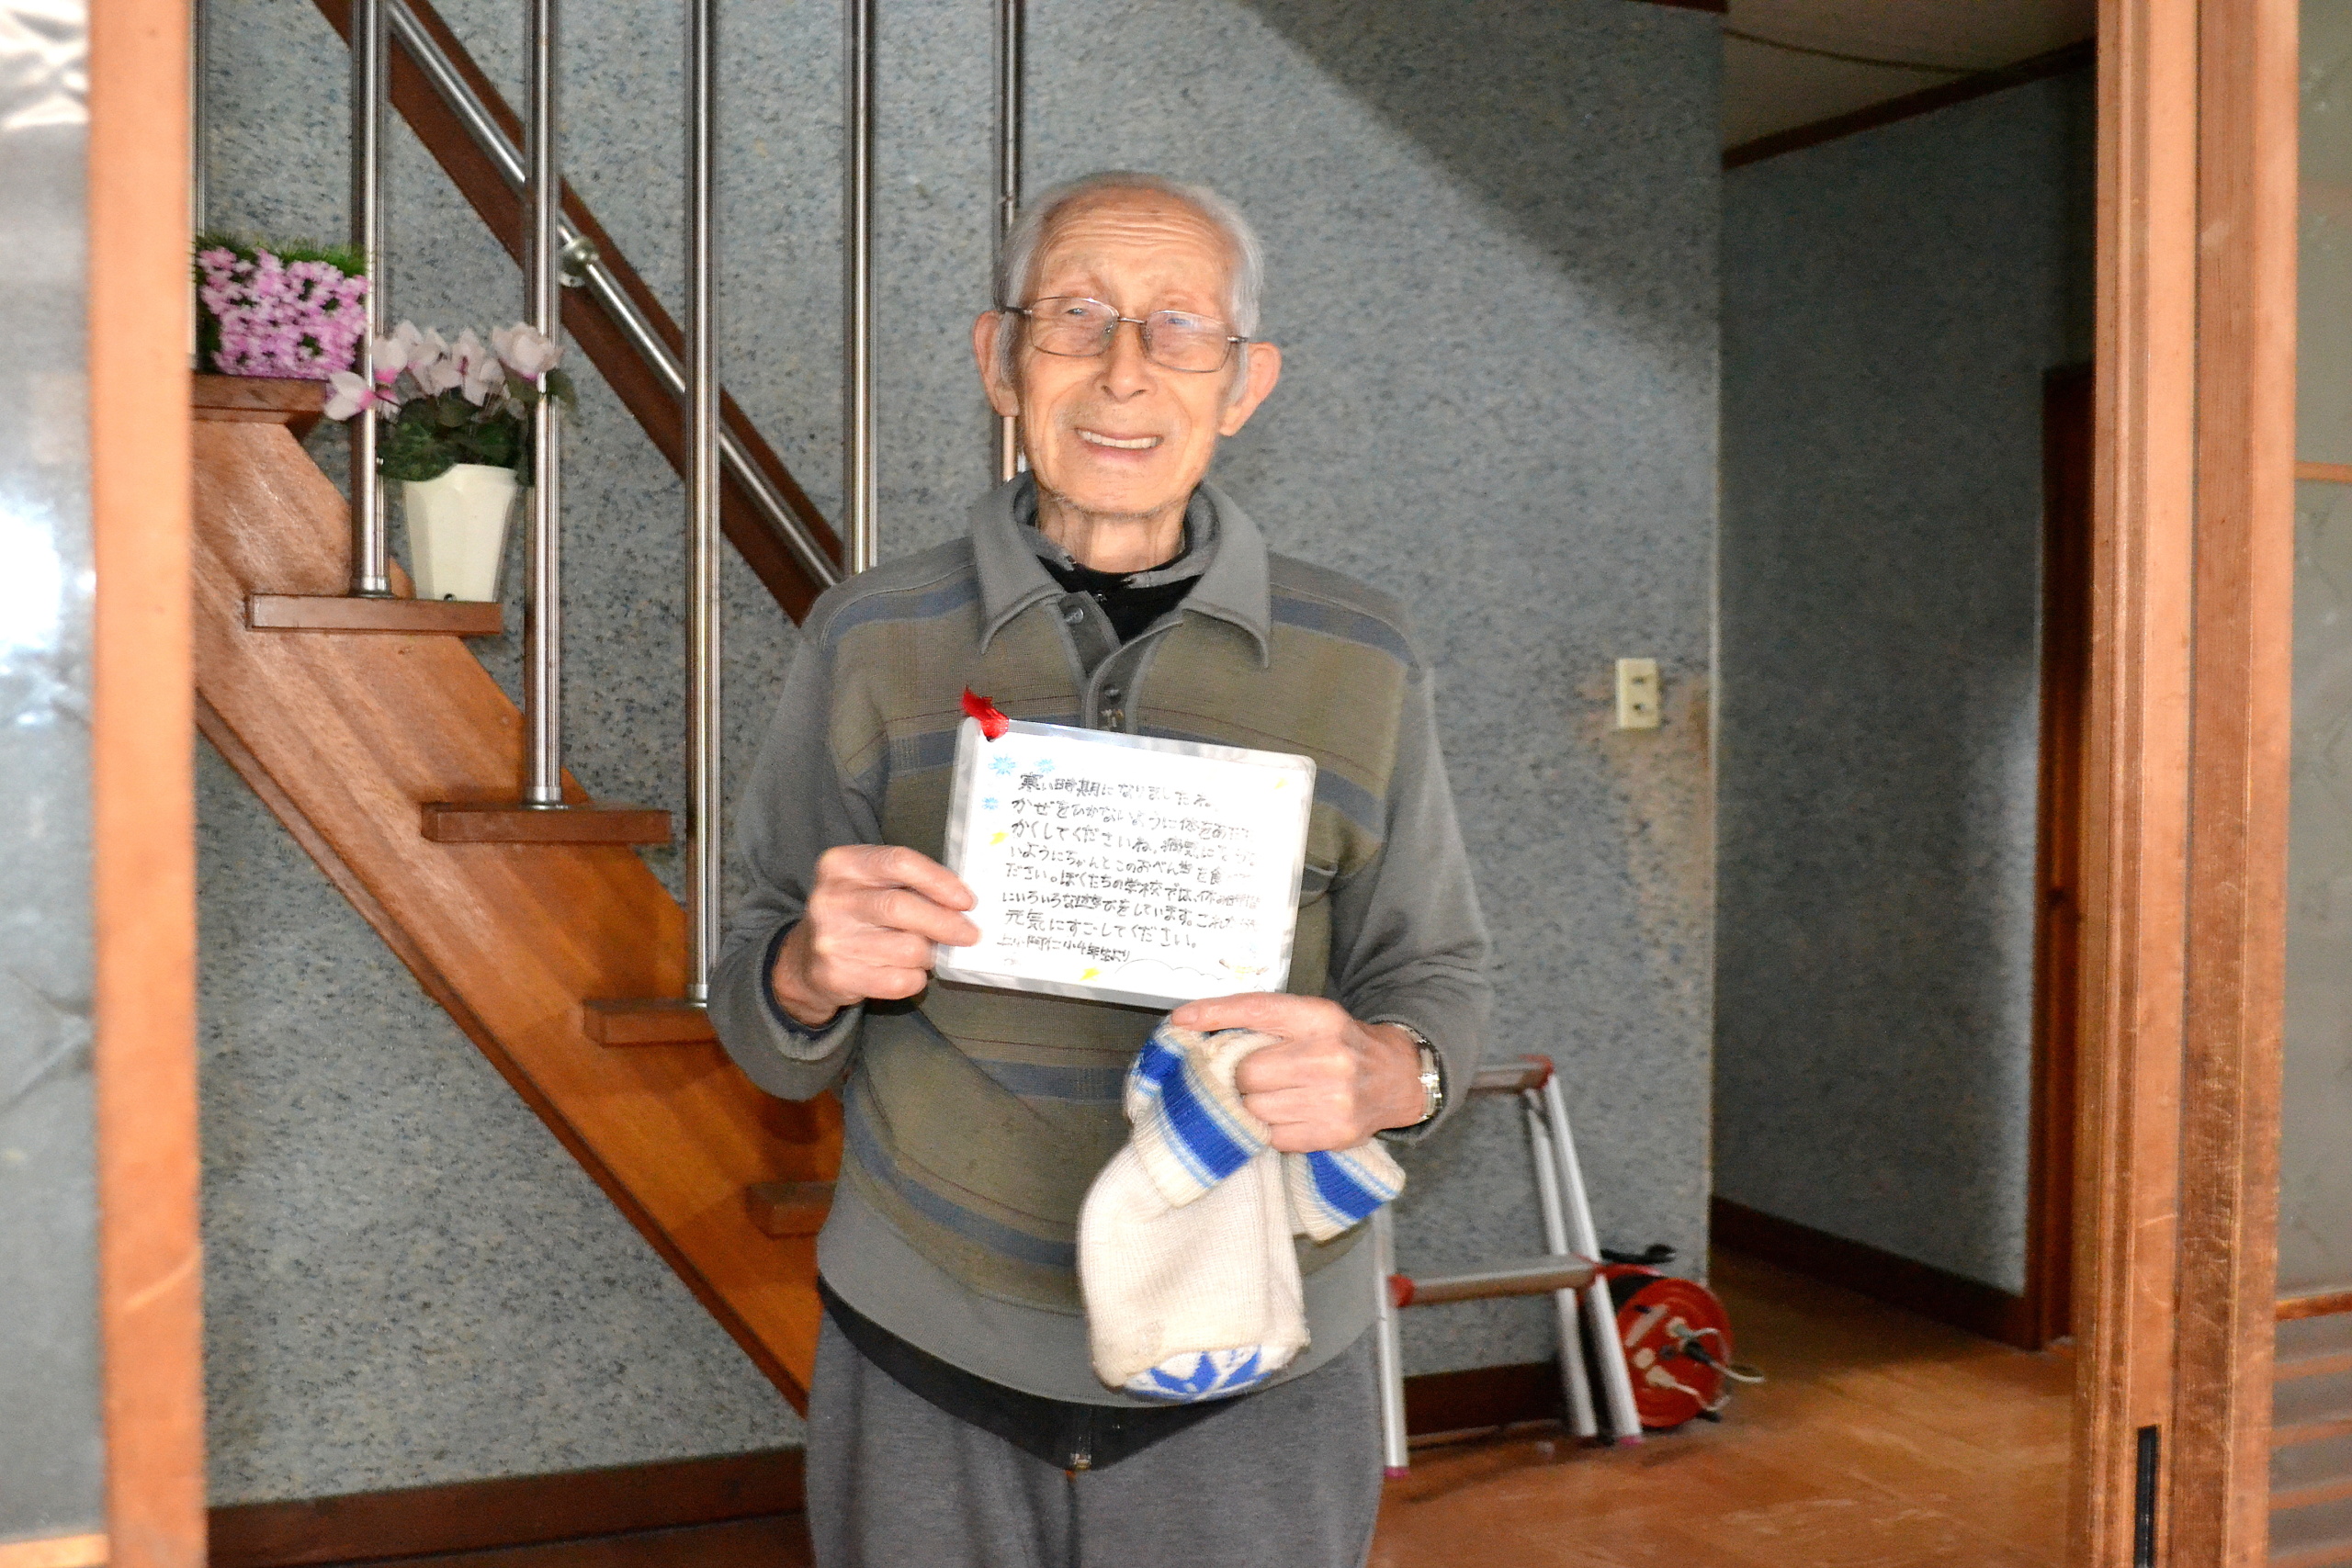 寒い時期になりましたね。
かぜをひかないように体をあたた
かくしてくださいね。病気にならな
いようにちゃんとこのおべん当を食べてく
ださい。ぼくたちの学校では、休み時間
にいろいろな遊びをしています。これからも
元気にすごしてください。
上小阿仁小4年生より